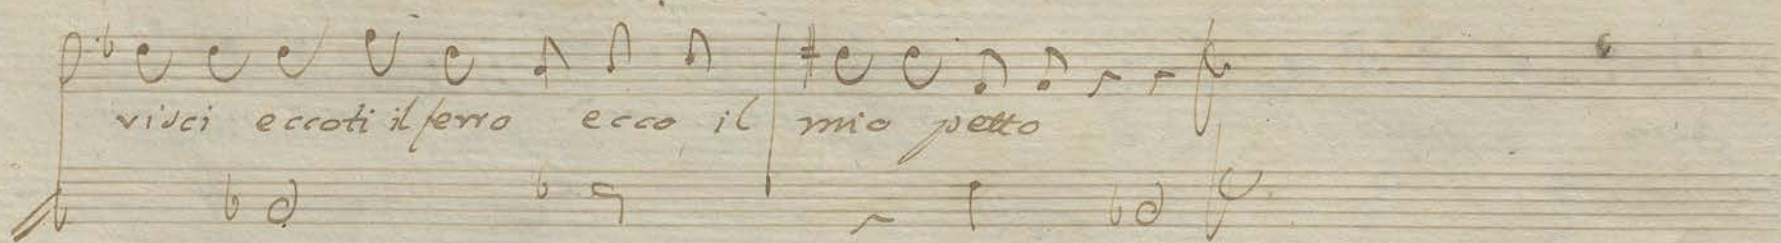 visci eccoti il ferro ecco il mio petto